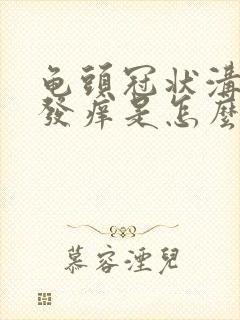 龟頭冠狀溝
發癢是怎麼
慕容湮兒